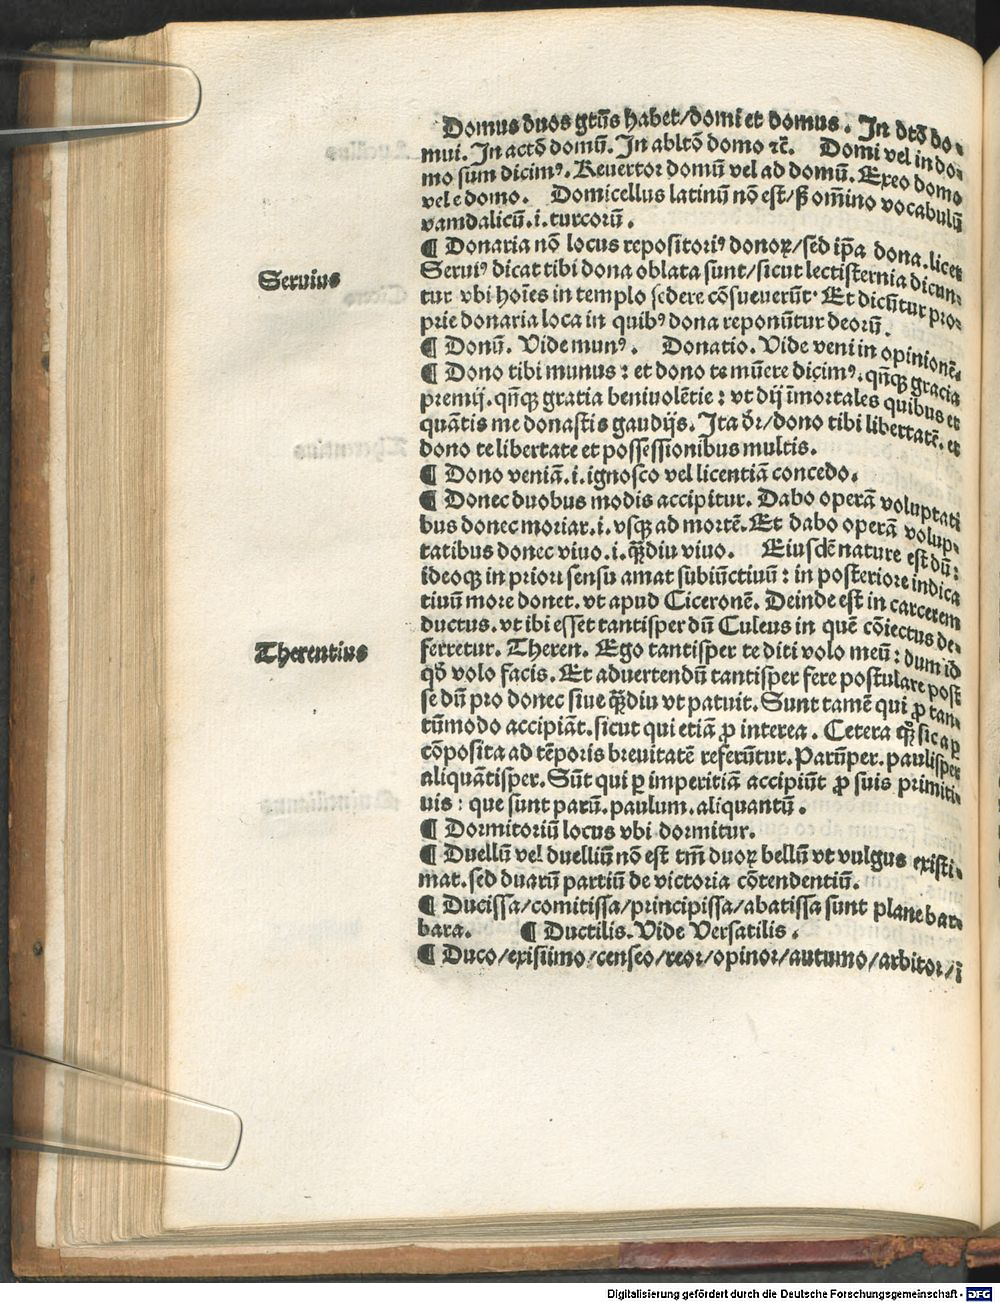 Domus duos gtūs habet/domi et domus. In dtō do-
mui. In actō domū. In abltō domo ⁊c̄. Domi vel in do-
mo sum dicimꝰ. Reuertor domū vel ad domū. Exeo domo
vel e domo. Domicellus latinū nō est/ß om̄ino vocabulū
vamdalicū.i.turcorū.
¶ Donaria nō locus repositoriꝰ donoꝝ/sed ip̄a dona.licet
Seruius
Seruiꝰ dicat tibi dona oblata sunt/sicut lectisternia dicun-
tur vbi hoīes in templo sedere cōsueuerūt. Et dicūtur pro-
prie donaria loca in quibꝰ dona reponūtur deorū.
¶ Donū. Vide munꝰ. Donatio. Vide veni in opinionē.
¶ Dono tibi munus: et dono te mūere dicimꝰ.qn̄qꝫ gracia
premij.qn̄qꝫ gratia beniuolētie: vt dij īmortales quibus et
quātis me donastis gaudijs. Ita dr̄/dono tibi libertatē.et
dono te libertate et possessionibus multis.
¶ Dono veniā.i.ignosco vel licentiā concedo.
¶ Donec duobus modis accipitur. Dabo operā voluptati
bus donec moriar.i.vsqꝫ ad mortē. Et dabo operā volup-
tatibus donec viuo.i.qꝫ̄diu viuo. Eiusdē nature est dū:
ideoqꝫ in priori sensu amat subiūctiuū: in posteriore indica
tiuū more donec. vt apud Ciceronē. Deinde est in carcerem
ductus. vt ibi esset tantisper dū Culeus in quē cōiectus de-
Therentius
ferretur. Theren. Ego tantisper te dici volo meū: dum id
qd̄ volo facis. Et aduertendū tantisper fere postulare post
se dū pro donec siue qꝫ̄diu vt patuit. Sunt tamē qui ꝓ tan-
tūmodo accipiāt.sicut qui etiā ꝓ interea. Cetera qꝫ̄ sic a ꝑ
cōposita ad tēporis breuitatē referūtur. Parūper.paulisper
aliquātisper. Sūt qui ꝑ imperitiā accipiūt ꝓ suis primiti-
uis: que sunt parū.paulum.aliquantū.
¶ Dormitoriū locus vbi dormitur.
¶ Duellū vel duelliū nō est tm̄ duoꝝ bellū vt vulgus existi-
mat.sed duarū partiū de victoria cōtendentiū.
¶ Ducissa/comitissa/principissa/abatissa sunt plane bar-
bara. ¶ Ductilis. Vide Versatilis.
¶ Duco/existimo/censeo/reor/opinor/autumo/arbitor/ī
Digitalisierung gefördert durch die Deutsche Forschungsgemeinschaft - DFG